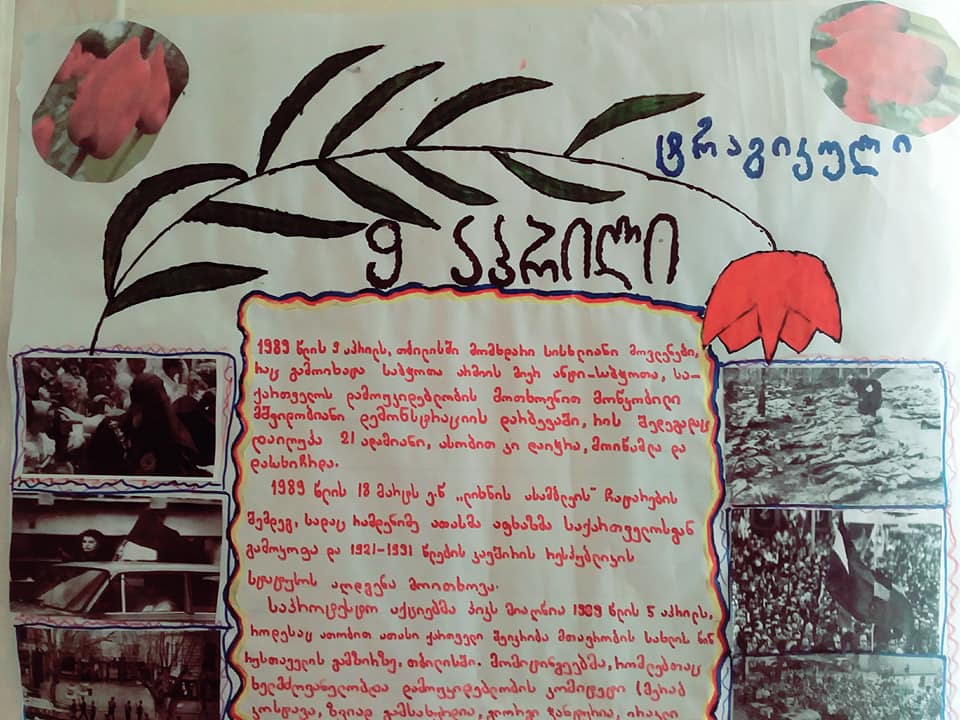 ტრაგიკული
9 აპრილი
1989 წლის 9 აპრილს, თბილისში მომხდარი სისხლიანი მოვლენები,
რაც გამოიხატა საბჭოთა არმიის მიერ ანტი-საბჭოთა, სა-
ქართველოს დამოუკიდებლობის მოთხოვნით მოწყობილი
მშვიდობიანი დემონსტრაციის დარბევაში, რის შედეგადაც
დაიღუპა 21 ადამიანი, ასობით კი დაიჭრა, მოიწამლა და
დასახიჩრდა.
1989 წლის 18 მარტს ე.წ „ლიხნის ასამბლეის" ჩატარების
შემდეგ, სადაც რამდენიმე ათასმა აფხაზმა საქართველოსგან
გამოყოფა და 1921-1931 წლების კავშირის რესპუბლიკის
სტატუსის აღდგენა მოითხოვა.
საპროტესტო აქციებმა პიკს მიაღწია 1989 წლის 5 აპრილს,
როდესაც ათობით ათასი ქართველი შეიკრიბა მთავრობის სახლის წინ
რუსთაველის გამზირზე, თბილისში. მომიტინგეებმა, რომლებთაც
ხელმძღვანელობდა დამოუკიდებლობის კომიტეტი (მერაბ
კოსტავა, ზვიად გამსახურდია, გიორგი ჭანტურია, ირაკლი